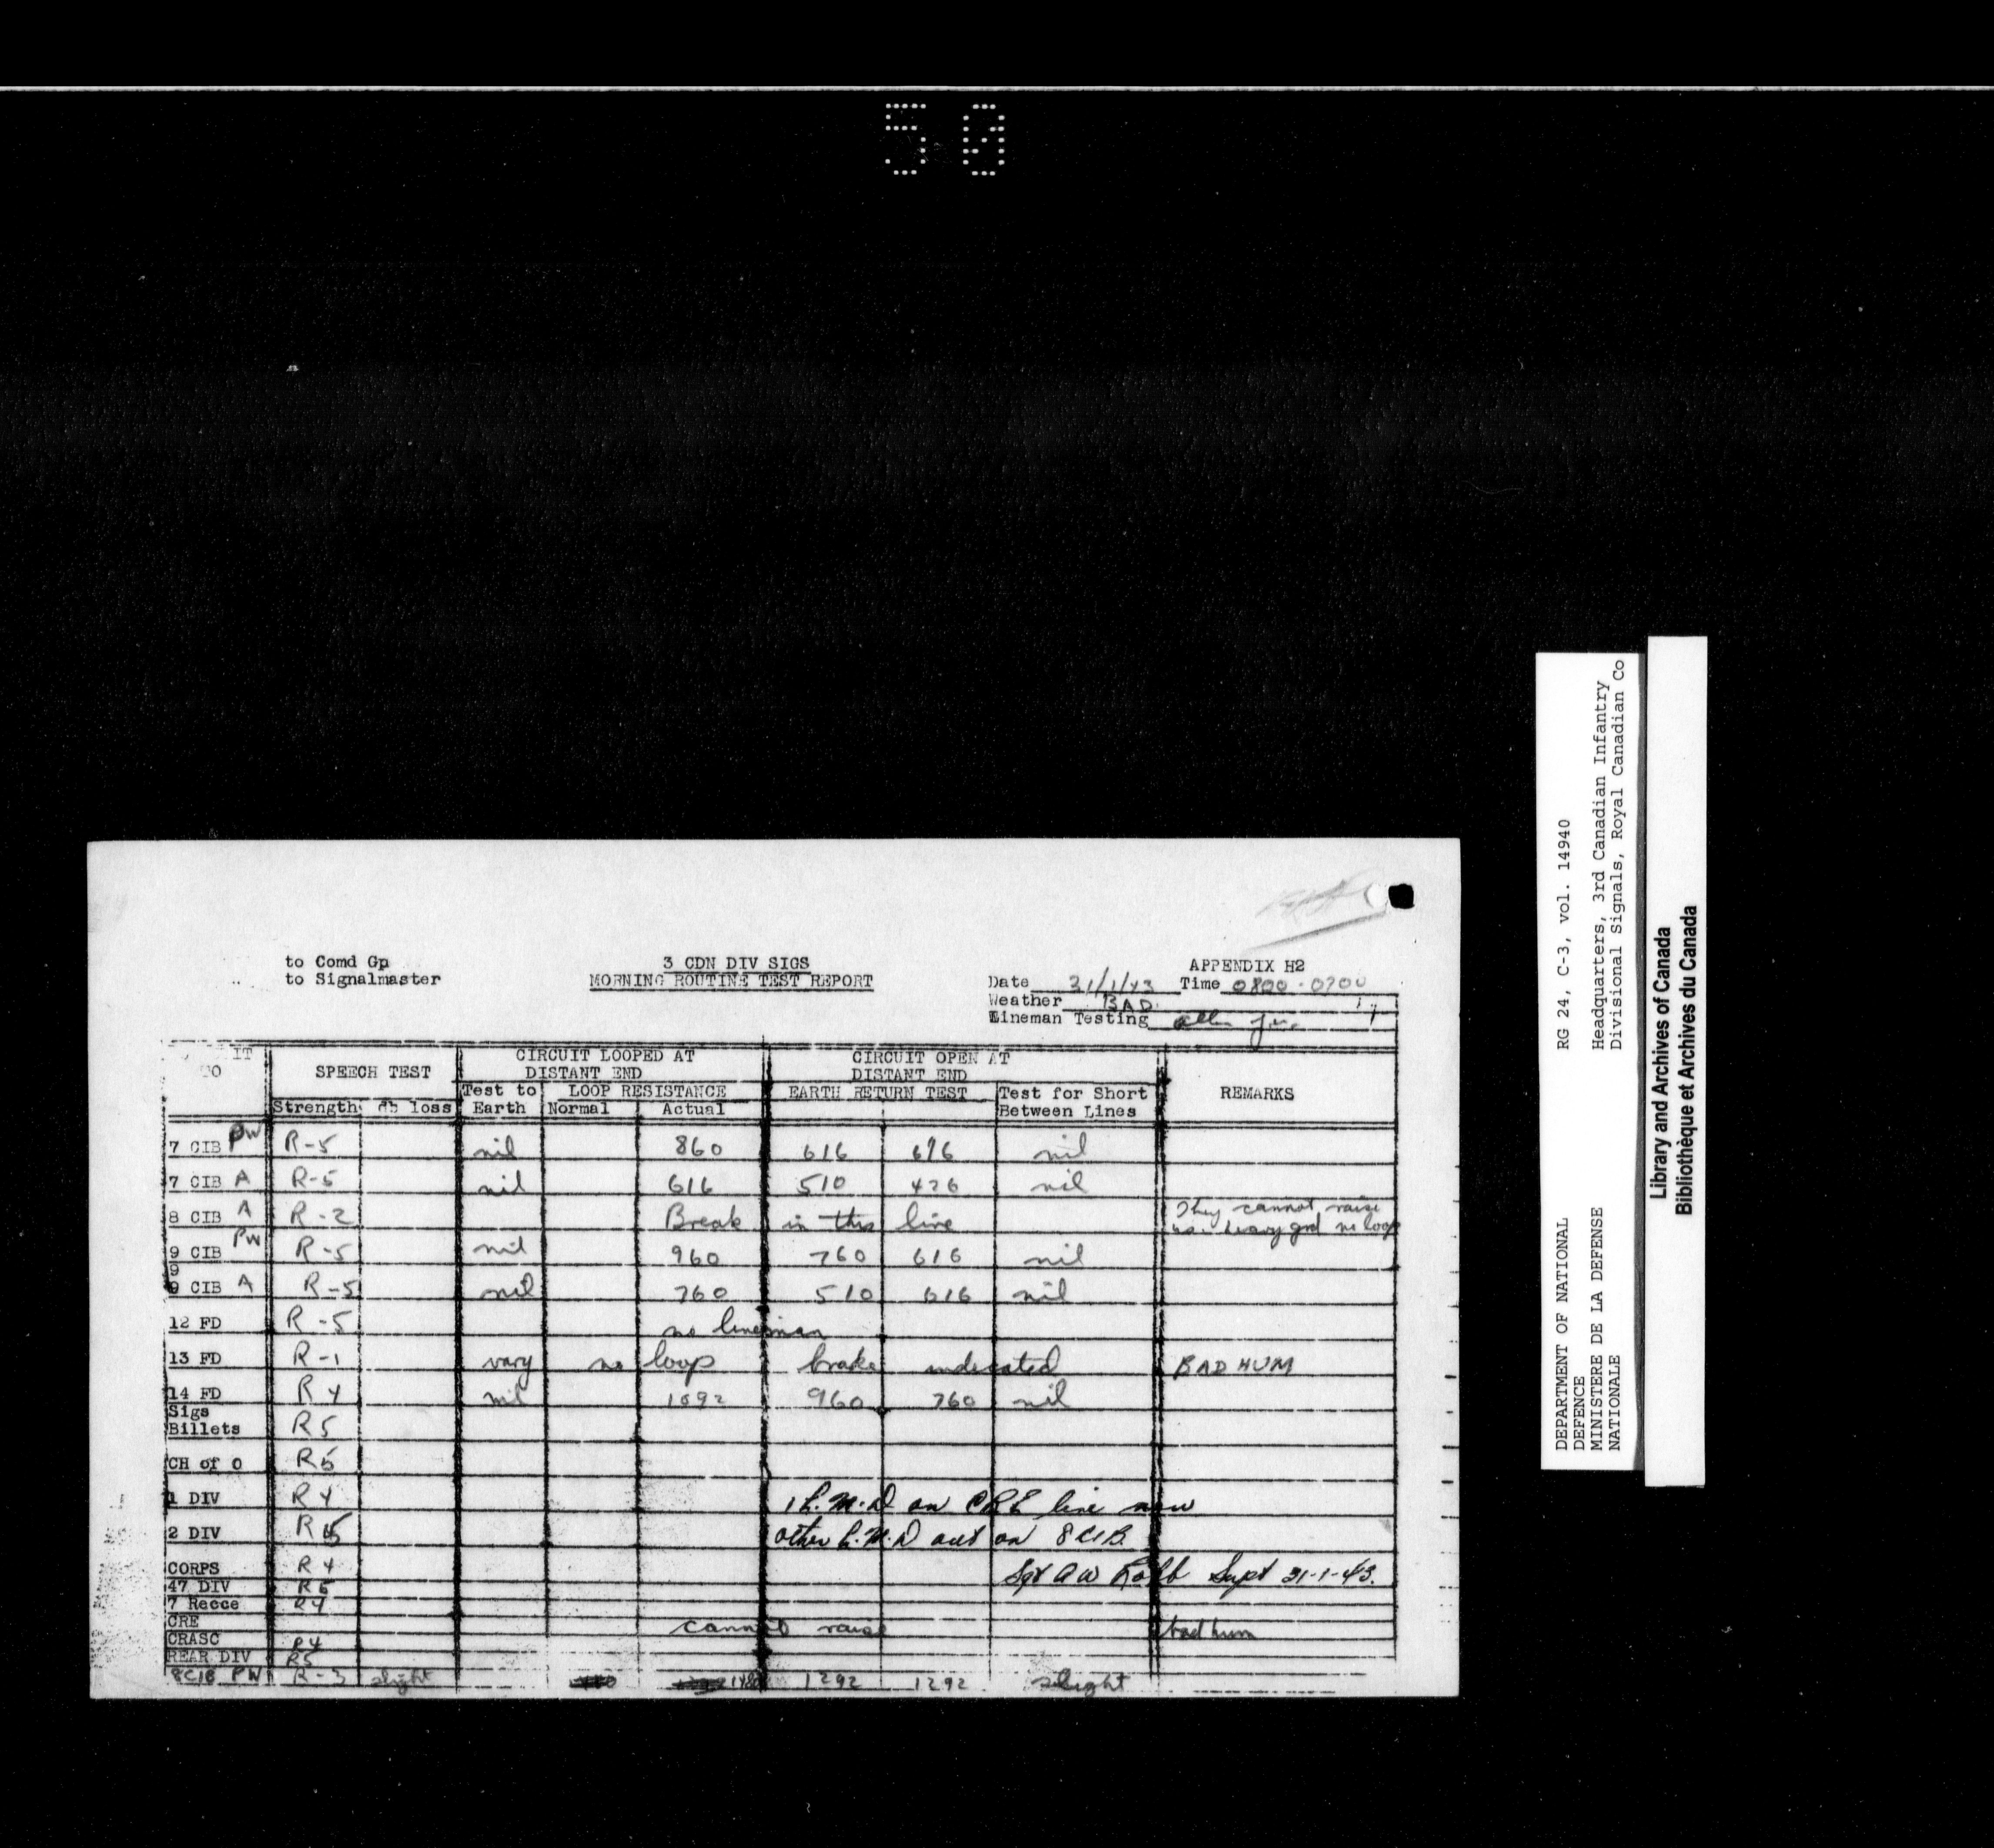 50
to Comd Gp
to Signalmaster
3 CDN DIV SIGS
MORNING ROUTINE TEST REPORT
APPENDIX H2
Date 31/1/43 Time 0800-0900
Weather BAD.
Lineman Testing
IT
TO
SPEECH TEST
CIRCUIT LOOPED AT
DISTANT END
CIRCUIT OPEN AT
DISTANT END
REMARKS
Strength db loss
Test to
Earth
LOOP RESISTANCE
Normal Actual
EARTH RETURN TEST
Test for Short
Between Lines
7 CIB PW R-5 nil 860 616 696 nil
7 CIB A R-5 nil 616 510 426 nil
8 CIB A R-2 Break in this line They cannot raise
us. heavy grd no loop
9 CIB PW R-5 nil 960 760 616 nil
9
9 CIB A R-5 nil 760 510 616 nil
12 FD R-5 no lineman
13 FD R-1 vary no loop brake indicated BAD HUM
14 FD R4 nil 1092 960 760 nil
Sigs
Billets R5
CH of O R5
1 DIV R4 1 L.M.D on CRE line now
2 DIV R5 other L.M.D out on 8 CIB
CORPS R4 Sgt A W Robb Supt 31-1-43.
47 DIV R5
7 Recce R4
CRE cannot raise bad hum
CRASC R4
REAR DIV R5
8CIB PW R-3 slight 1292 1292 slight
RG 24, C-3, vol. 14940
Headquarters, 3rd Canadian Infantry
Divisional Signals, Royal Canadian Co
DEPARTMENT OF NATIONAL
DEFENCE
MINISTERE DE LA DEFENSE
NATIONALE
Library and Archives of Canada
Bibliothèque et Archives du Canada